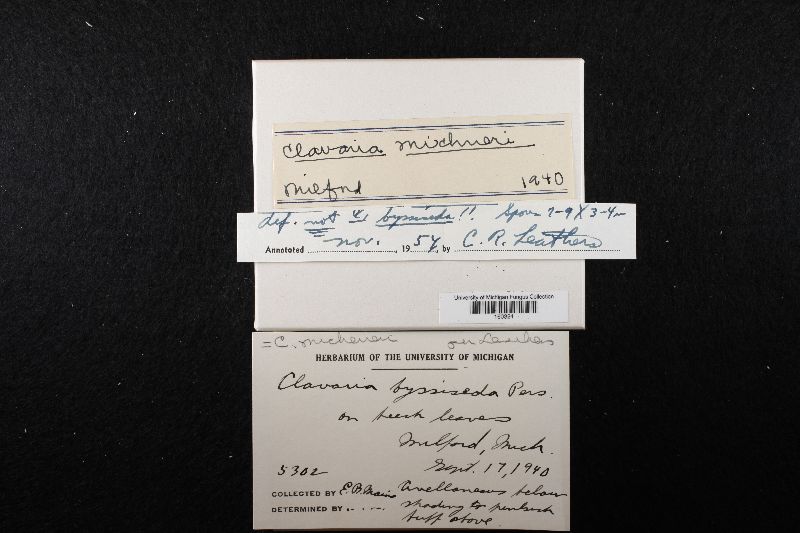 Clavaria michneri
Milford 1940
def. not C. byssiseda!! Spores 7-9 X 3-4
Annotated Nov. 1954, by C. R. Leathers
University of Michigan Fungus Collection
= C. micheneri per Leathers
HERBARIUM OF THE UNIVERSITY OF MICHIGAN
Clavaria byssiseda Pers.
on beech leaves
Milford, Mich.
5302 Sept. 17, 1940
COLLECTED BY E.B. Mains Avellaneous below
DETERMINED BY " shading to pinkish
buff above.